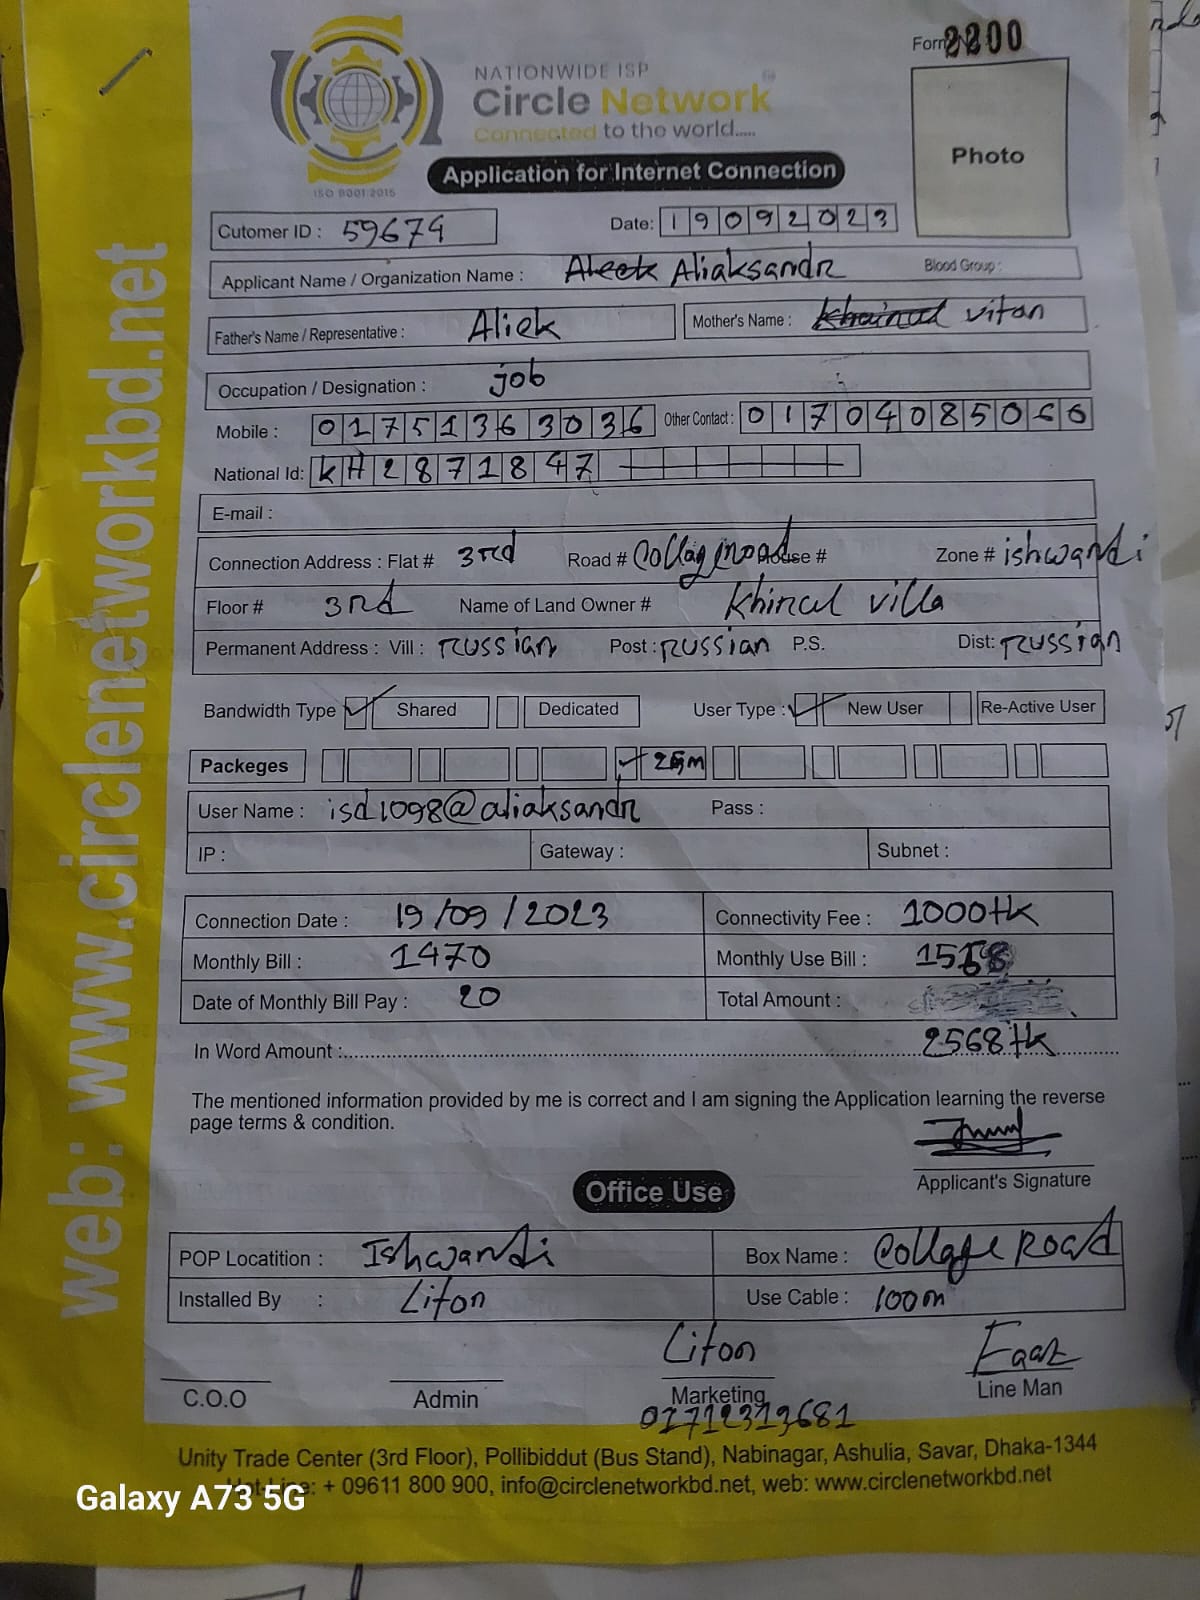 Form 2200
NATIONWIDE ISP
Circle Network
Connected to the world.....
ISO 9001:2015
Application for Internet Connection
Photo
Cutomer ID : 59674 Date: 19092023
Applicant Name / Organization Name : Aleek Aliaksandr Blood Group :
Father's Name / Representative : Aliek Mother's Name : Khainul vitan
Occupation / Designation : job
Mobile : 01751363036 Other Contact : 01704085060
National Id: KH2871847
E-mail :
Connection Address : Flat # 3rd Road # House # Zone # ishwardi
Floor # 3rd Name of Land Owner # villa
Permanent Address : Vill : Russian Post : Russian P.S. Dist: Russian
Bandwidth Type Shared Dedicated User Type : New User Re-Active User
Packeges 25m
User Name : isd1098@aliaksandr Pass :
IP : Gateway : Subnet :
Connection Date : 19/09/2023 Connectivity Fee : 1000tk
Monthly Bill : 1470 Monthly Use Bill : 1568
Date of Monthly Bill Pay : 20 Total Amount :
In Word Amount :.......... 2568tk
The mentioned information provided by me is correct and I am signing the Application learning the reverse
page terms & condition.
Applicant's Signature
Office Use
POP Locatition : Ishwardi Box Name : Collage Road
Installed By : Liton Use Cable : 100m
Liton
C.O.O Admin Marketing Line Man
01712313681
Unity Trade Center (3rd Floor), Pollibiddut (Bus Stand), Nabinagar, Ashulia, Savar, Dhaka-1344
Hot-Line: + 09611 800 900, info@circlenetworkbd.net, web: www.circlenetworkbd.net
web: www.circlenetworkbd.net
Galaxy A73 5G